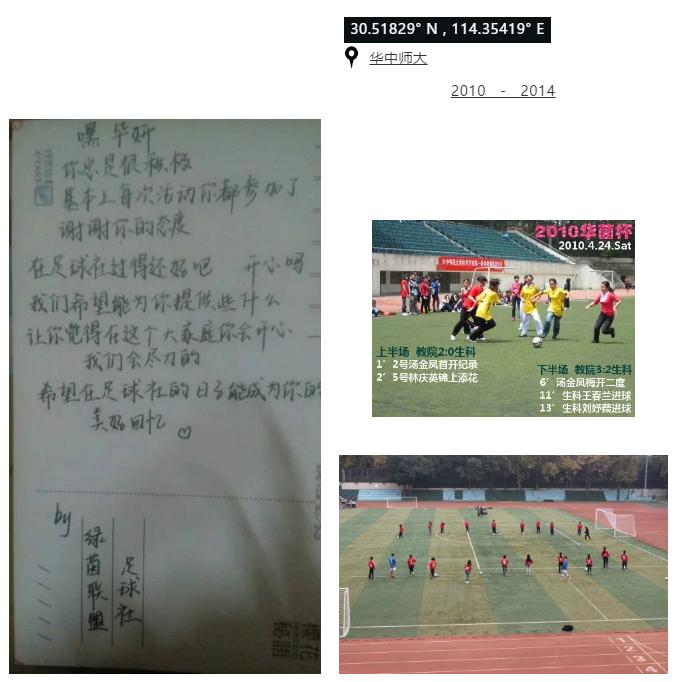 30.51829° N , 114.35419° E
华中师大
2010 - 2014
嘿 华妍
你总是很积极
基本上每次活动你都参加了
谢谢你的态度
在足球社过得还好吧 开心吗
我们希望能为你提供些什么
让你觉得在这个大家庭你会开心
我们会尽力的
希望在足球社的日子能成为你的
美好回忆 ♡
by
绿茵联盟
足球社
樱花
秘语
2010华茵杯
2010.4.24.Sat
上半场 教院2:0生科
1′ 2号汤金凤首开纪录
2′ 5号林庆英锦上添花
下半场 教院3:2生科
6′ 汤金凤梅开二度
11′ 生科王春兰进球
13′ 生科刘妤薇进球
1 2 3 4